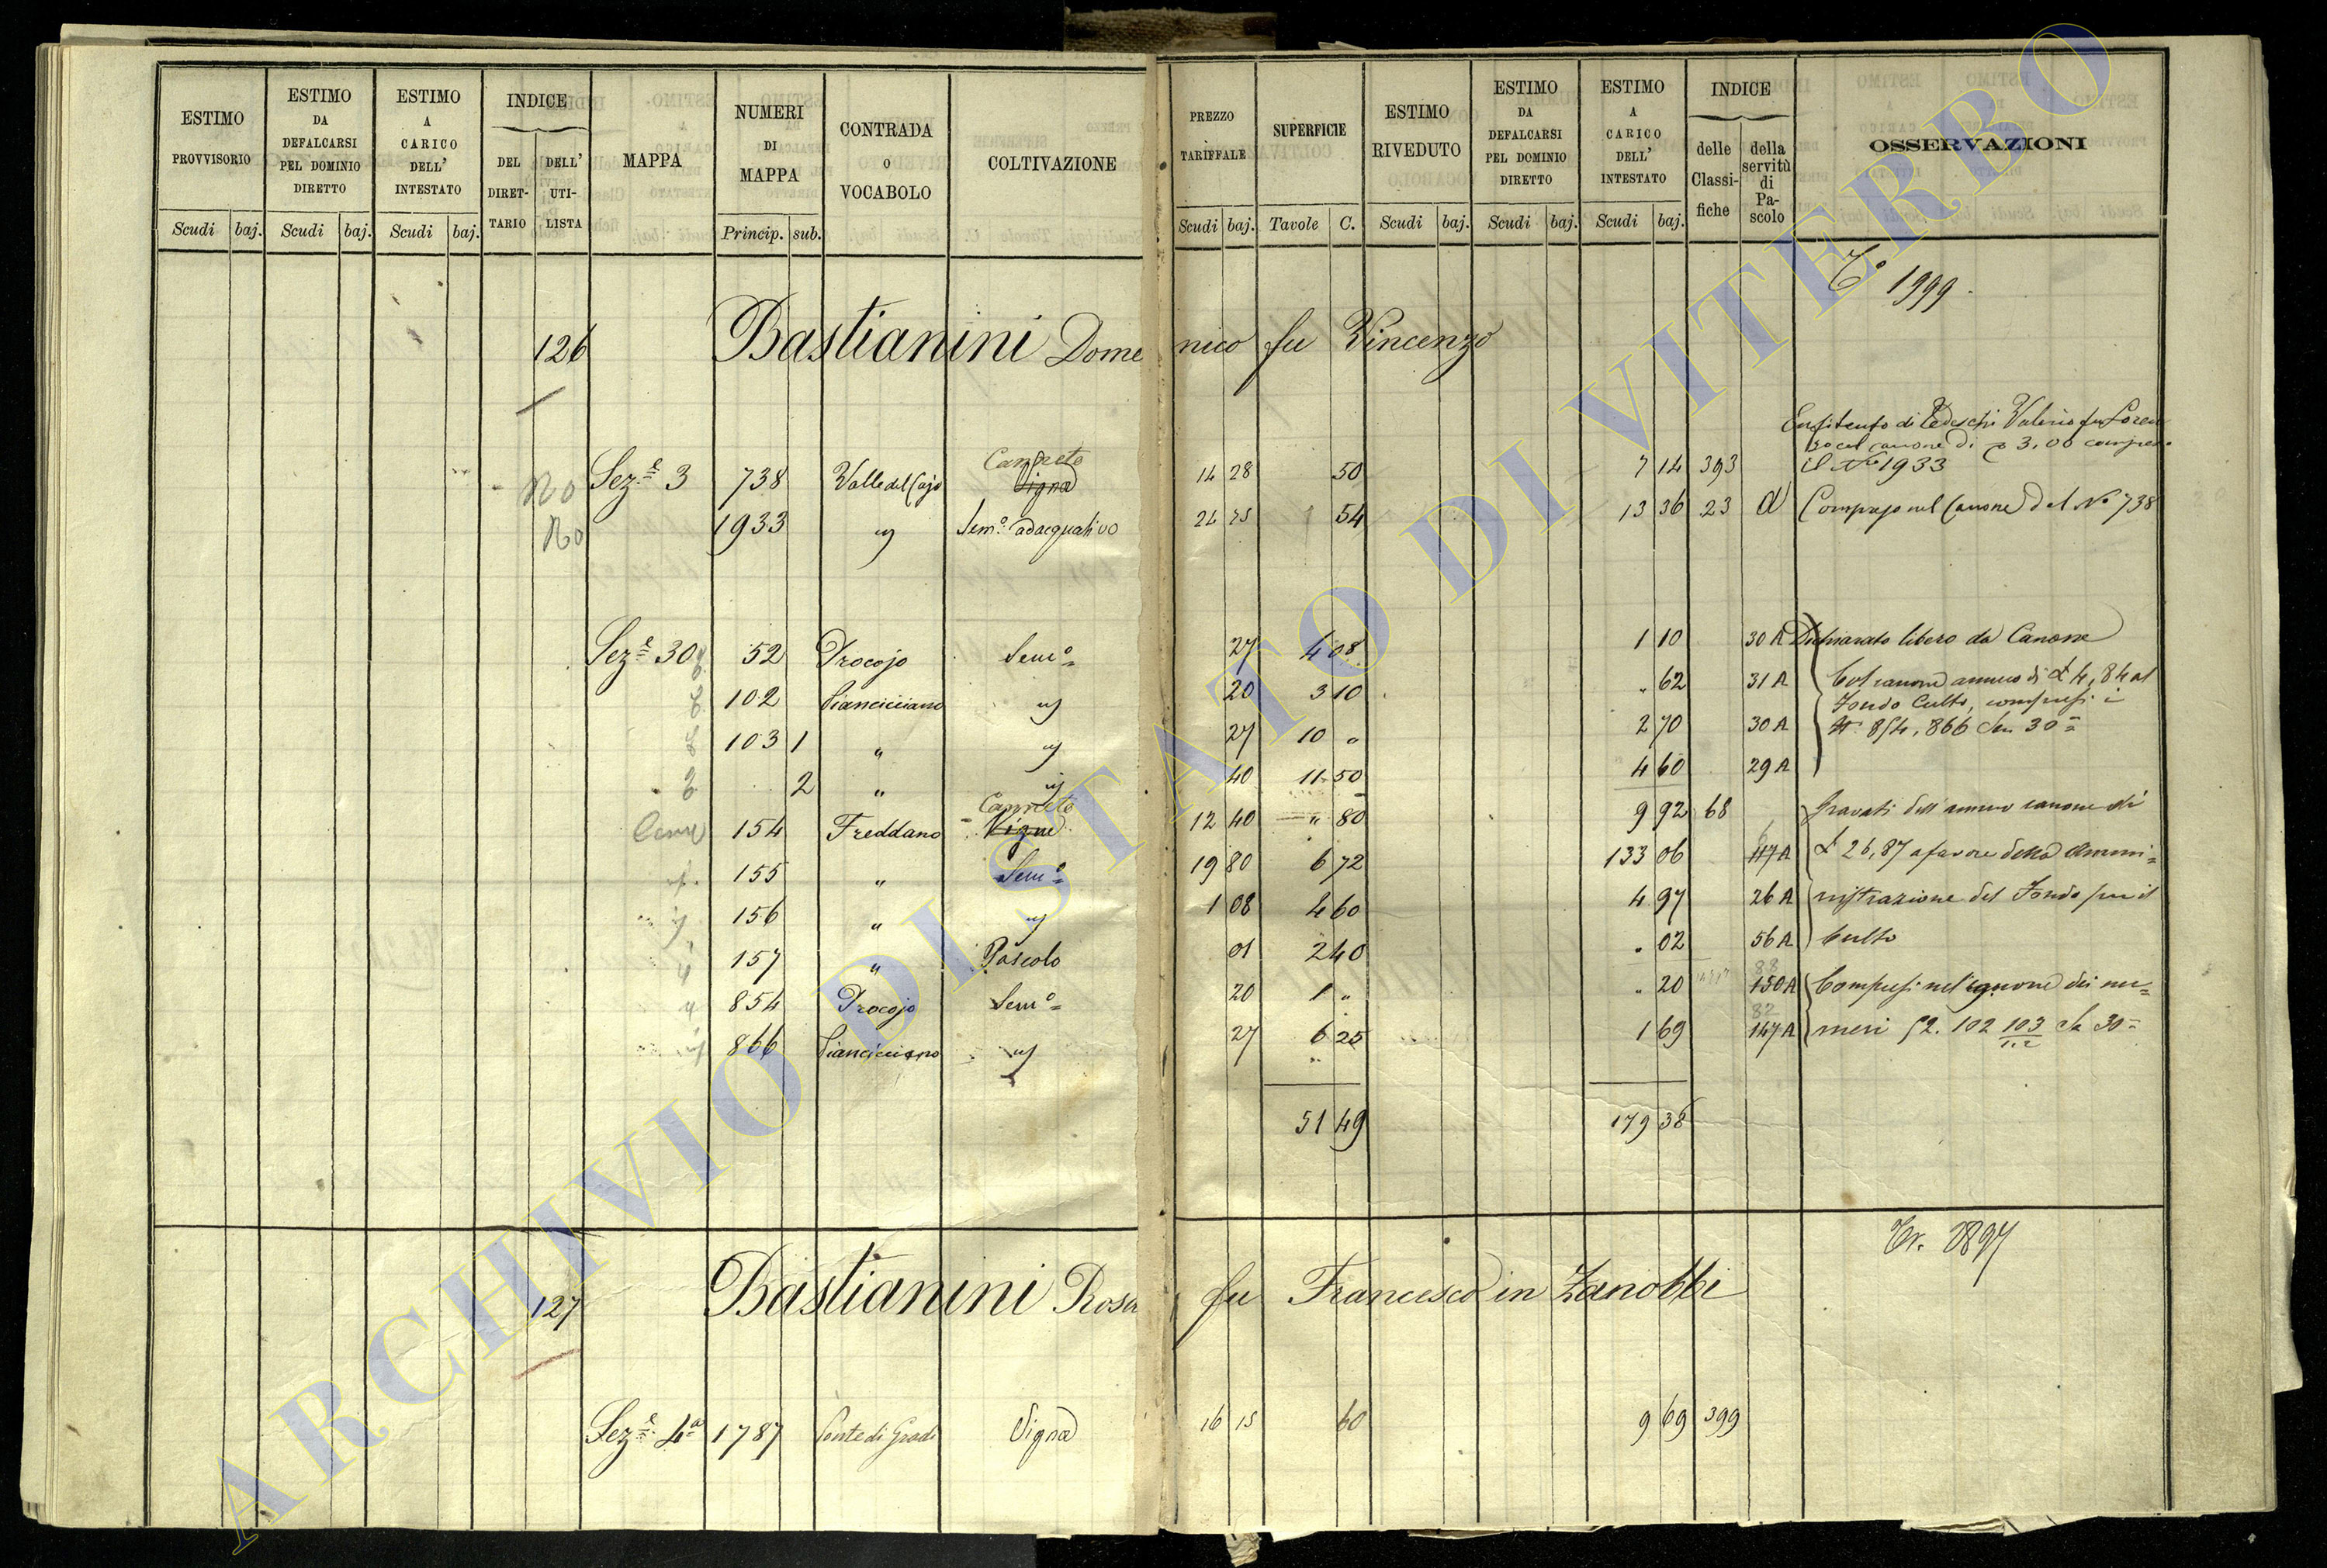 ESTIMO PROVVISORIO | ESTIMO DA DEFALCARSI PEL DOMINIO DIRETTO | ESTIMO A CARICO DELL' INTESTATO | INDICE DEL DIRET-TARIO | DELL' UTI-LISTA | MAPPA | NUMERI DI MAPPA | CONTRADA O VOCABOLO | COLTIVAZIONE | PREZZO TARIFFALE | SUPERFICIE | ESTIMO RIVEDUTO | ESTIMO DA DEFALCARSI PEL DOMINIO DIRETTO | ESTIMO A CARICO DELL' INTESTATO | INDICE delle Classi-fiche | della servitù di Pa-scolo | OSSERVAZIONI
Scudi baj. Scudi baj. Scudi baj. Princip. sub. Scudi baj. Tavole C. Scudi baj. Scudi baj. Scudi baj.
1999
126 Bastianini Domenico fu Vincenzo
Enfiteuta di Tedeschi Valerio fu Loren
zo col canone di 3,00 compreso
No Sez.e 3 738 Valle del Cajo Canneto Vigna 14 28 50 7 14 393 il No 1933
No 1933 " Sem.o adacquativo 24 75 54 13 36 23 a Compreso nel Canone del No 738
Sez.e 30 52 Procojo Sem.o 27 4 08 1 10 30 A Dichiarato libero da Canone
102 Pianciciano " 20 3 10 " 62 31 A Col canone annuo di £ 4,84 al
Fondo Culto, compresi i
103 1 " " 27 10 " 2 70 30 A N. 854, 866 Sez. 30
2 " " 40 11 50 4 60 29 A
154 Freddano Canneto Vigna 12 40 " 80 9 92 68 Gravati dell'annuo canone di
155 " Sem.o 19 80 6 72 133 06 117 A £ 26,87 a favore della Ammi=
156 " " 1 08 4 60 4 97 26 A nistrazione del Fondo per il
157 " Pascolo 01 2 40 " 02 56 A Culto
88
854 Procojo Sem.o 20 1 " " 20 150 A Compresi nel canone dei nu=
82
866 Pianciciano " 27 6 25 1 69 147 A meri 52. 102 103 Sz 30
1.2
51 49 179 38
Tr. 1897
127 Bastianini Rosa fu Francesco in Zanobbi
Sez.e 4a 1787 Ponte di Gradi Vigna 16 15 60 9 69 399
ARCHIVIO DI STATO DI VITERBO